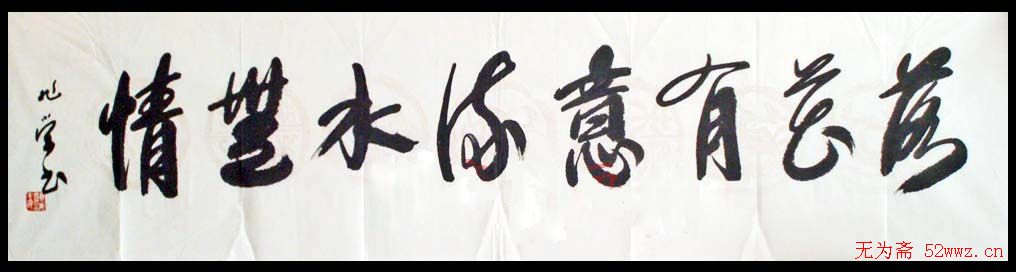 落花有意流水無情
无为斋 52wwz.cn